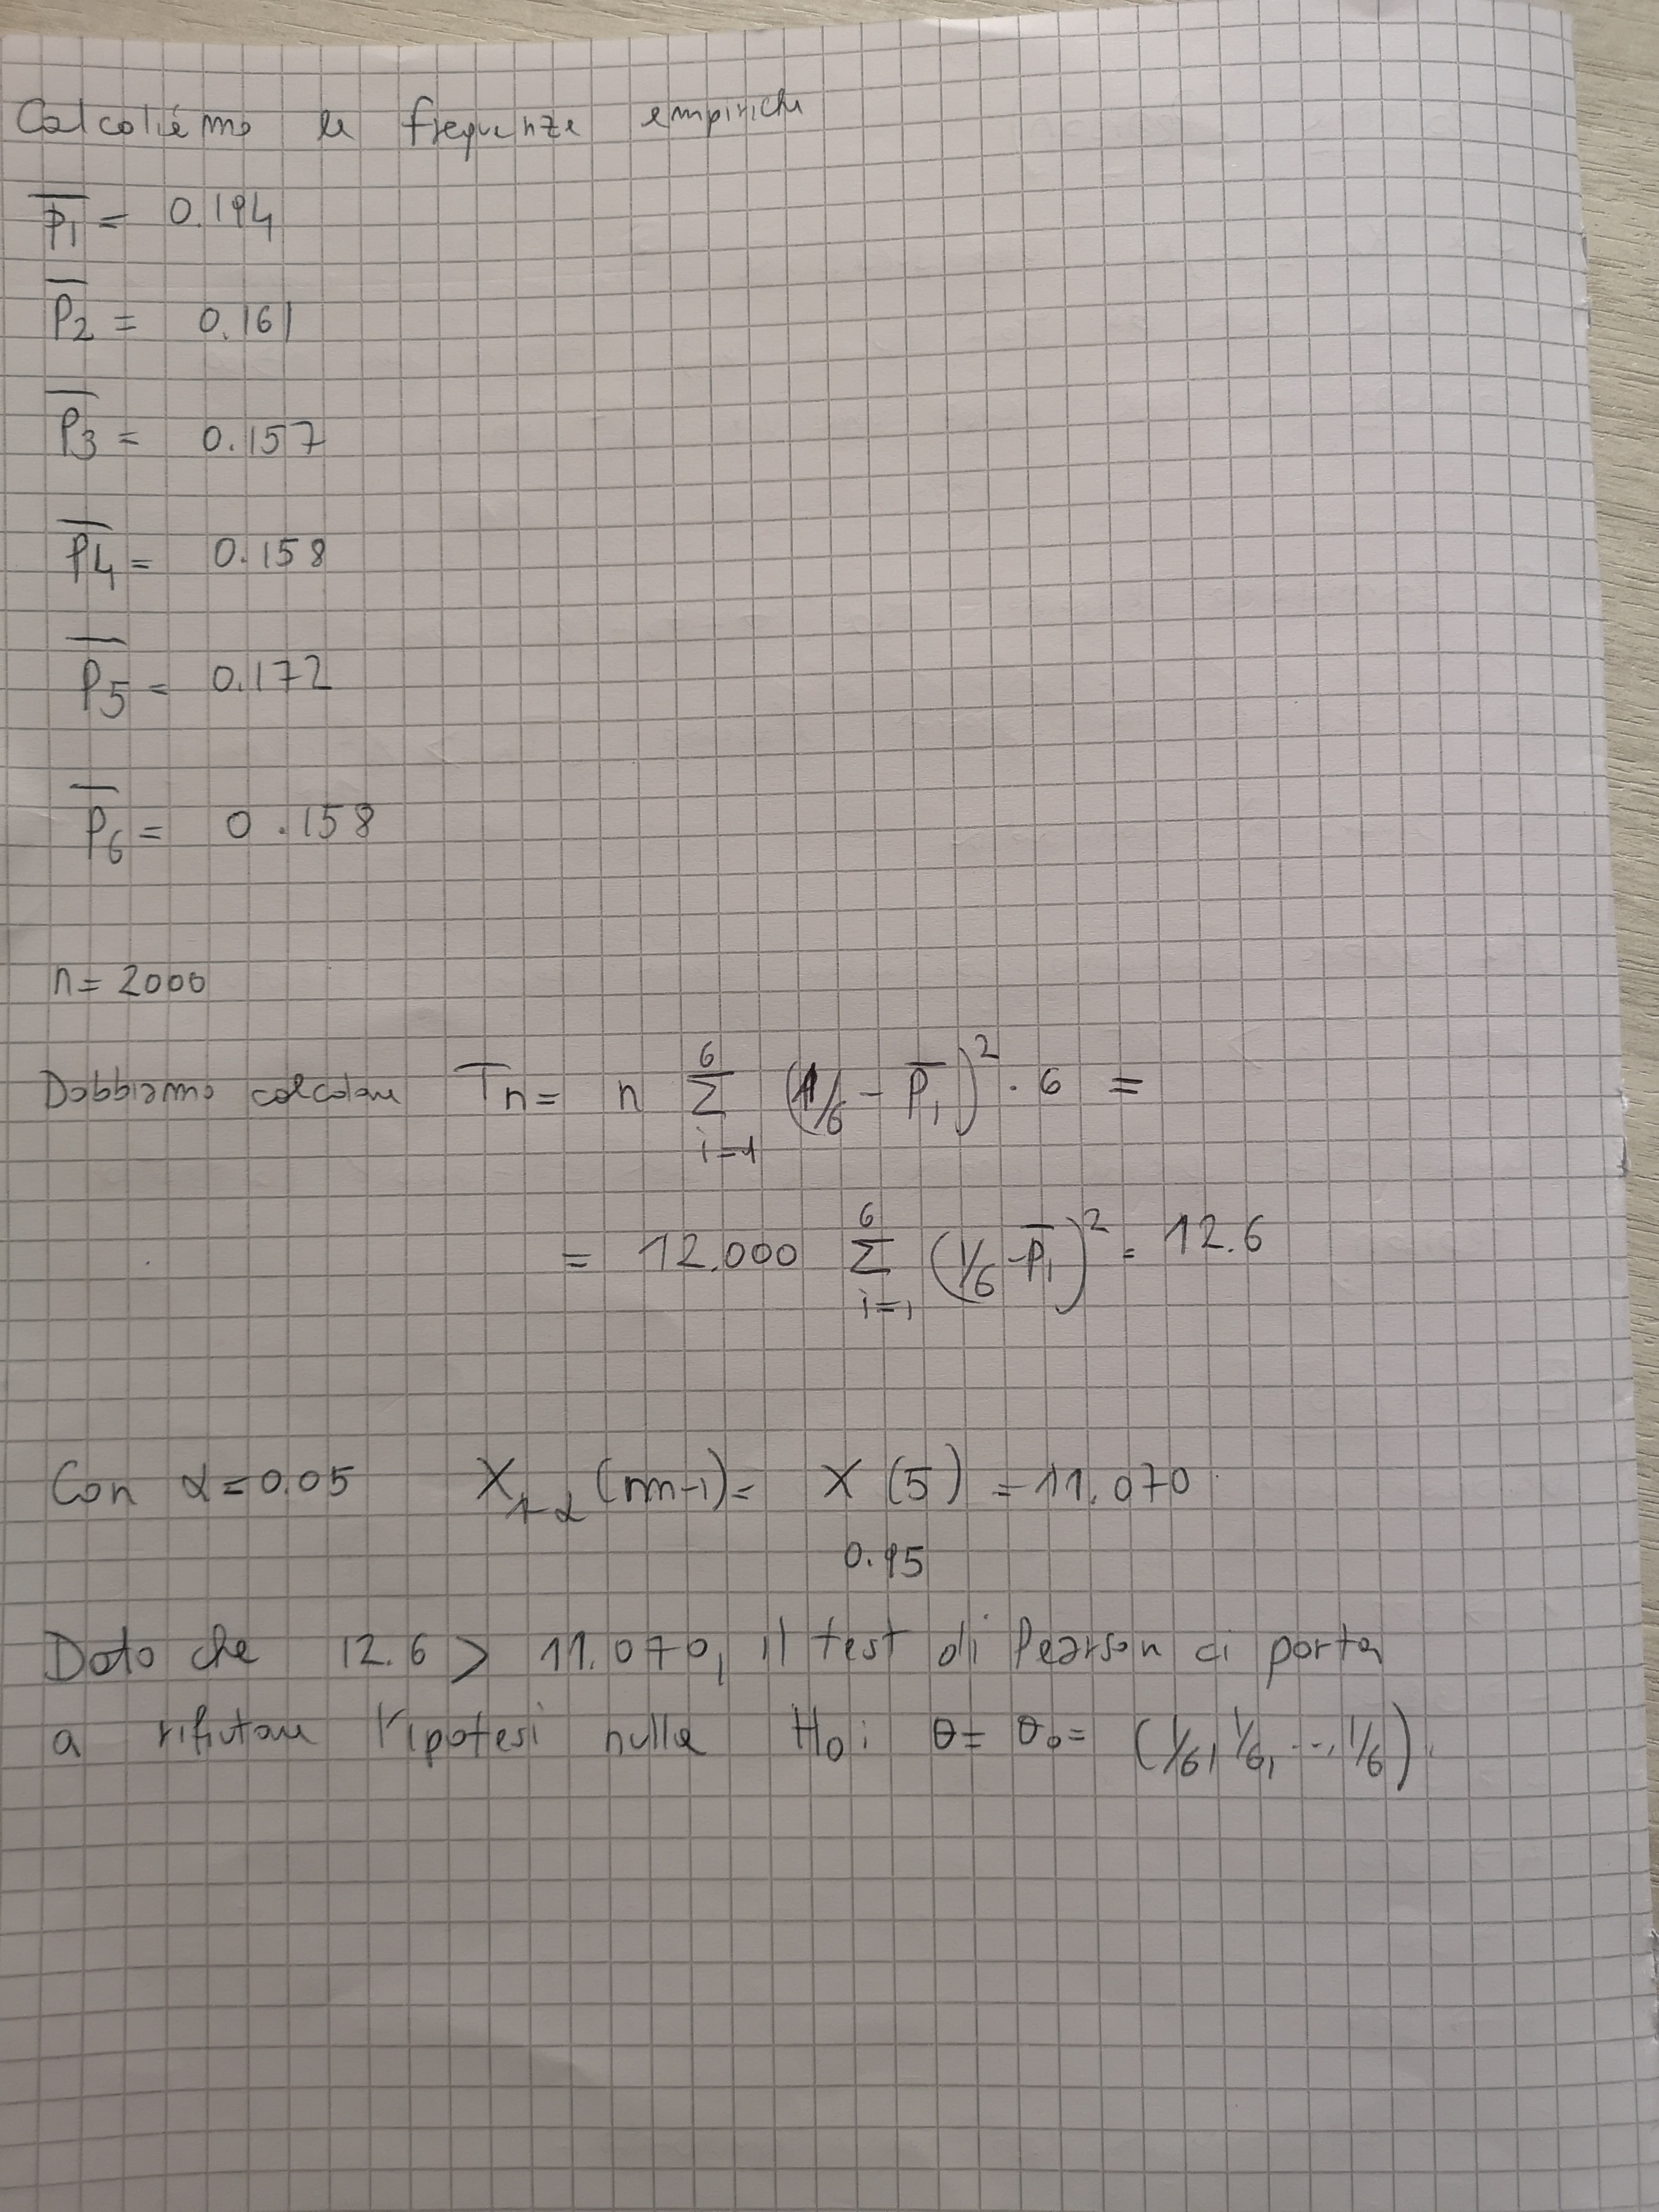 Calcoliamo le frequenze empiriche
p̅₁ = 0.194
p̅₂ = 0.161
p̅₃ = 0.157
p̅₄ = 0.158
p̅₅ = 0.172
p̅₆ = 0.158
n = 2000
Dobbiamo calcolare Tn = n ∑_{i=1}^{6} (1/6 - p̅ᵢ)² · 6 =
= 12.000 ∑_{i=1}^{6} (1/6 - p̅ᵢ)² = 12.6
Con α = 0.05 X_{1-α} (m-1) = X_{0.95} (5) = 11.070
Dato che 12.6 > 11.070, il test di Pearson ci porta
a rifiutare l'ipotesi nulla H₀: θ = θ₀ = (1/6, 1/6, ..., 1/6).